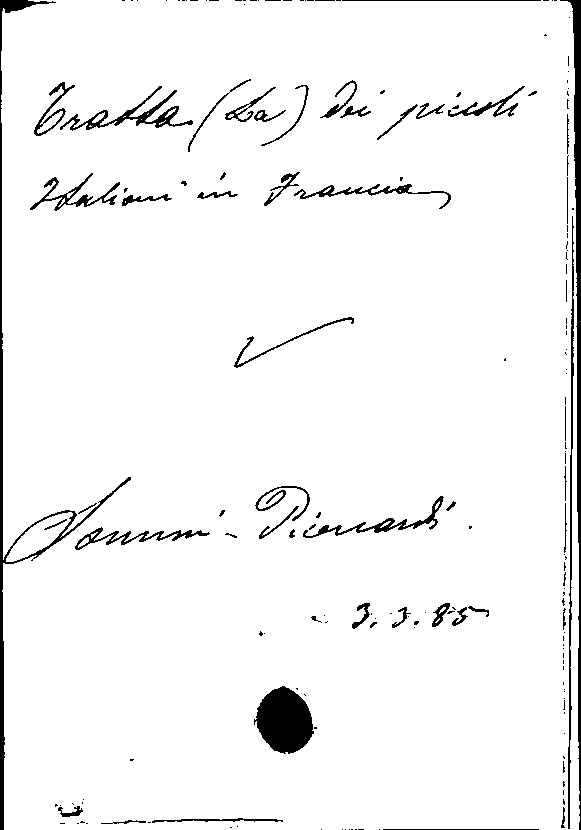 Tratta (La) dei piccoli
Italiani in Francia
Sommi - Picenardi.
3.3.85